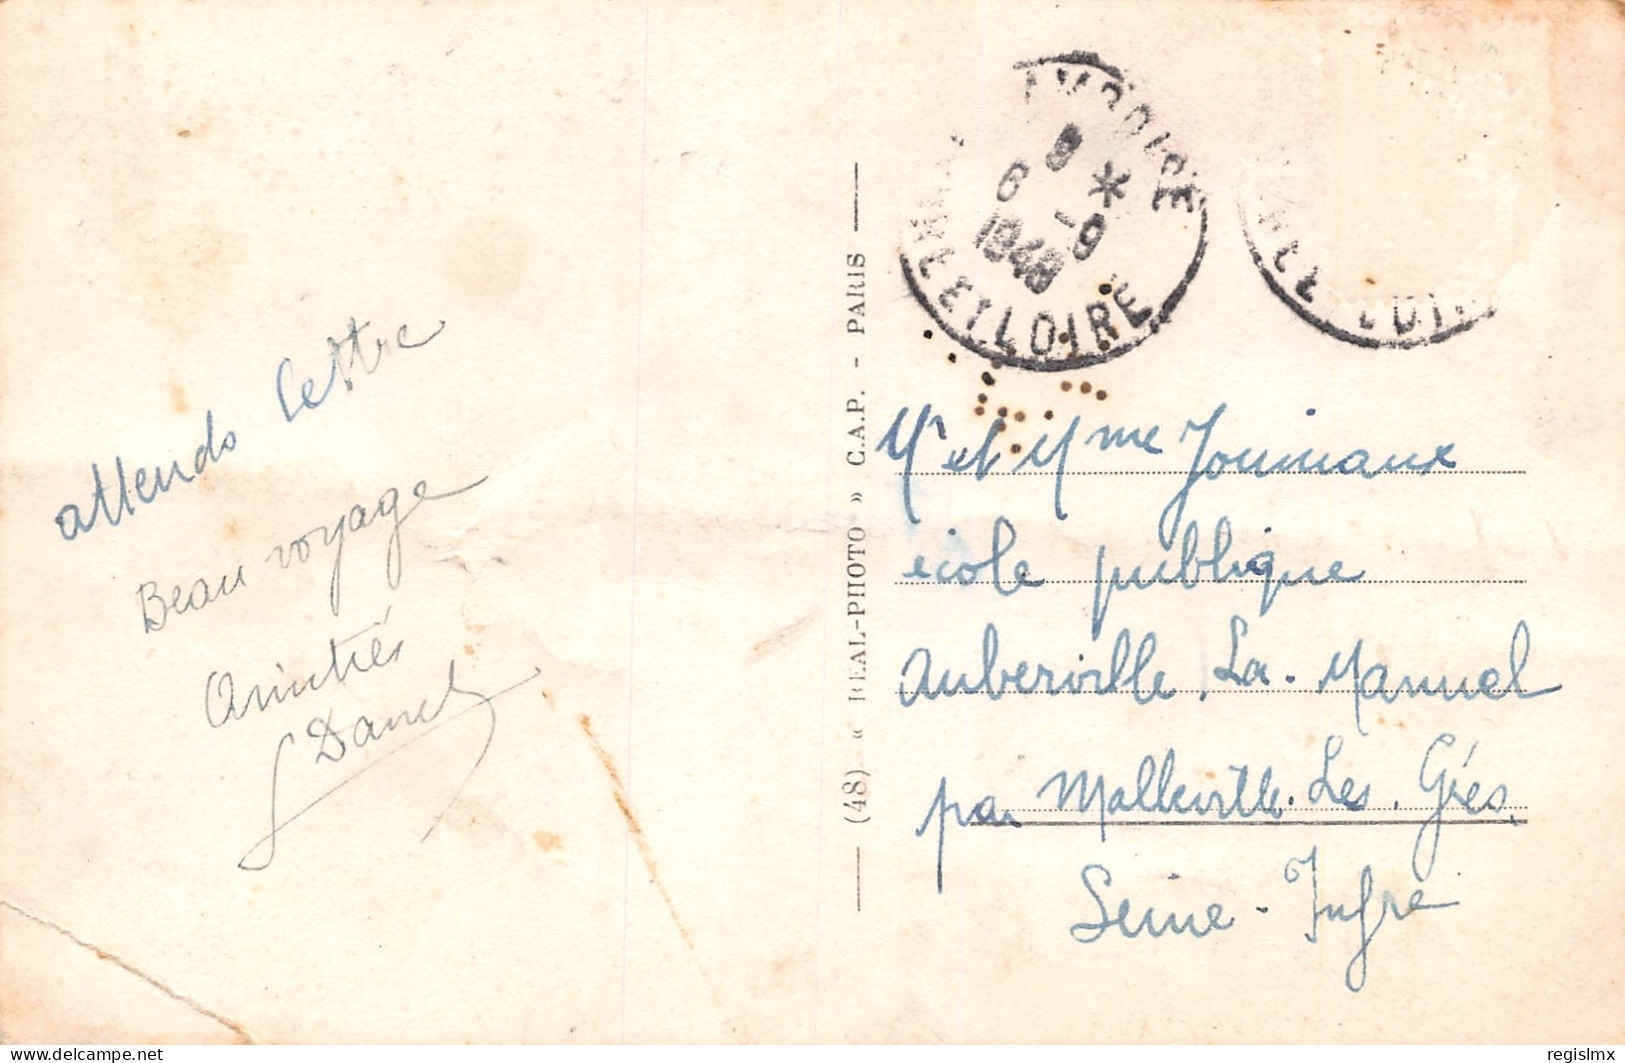 attends lettre
Beau voyage
Amitiés
Daniel
(48) « REAL-PHOTO » C.A.P. - PARIS
8 *
6 -9
1948
NE ET LOIRE
Mr et Mme Jouinaux
école publique
Auberville. La. Manuel
par Malleville. Les. Grès.
Seine-Infre
delcampe.net
regislmx